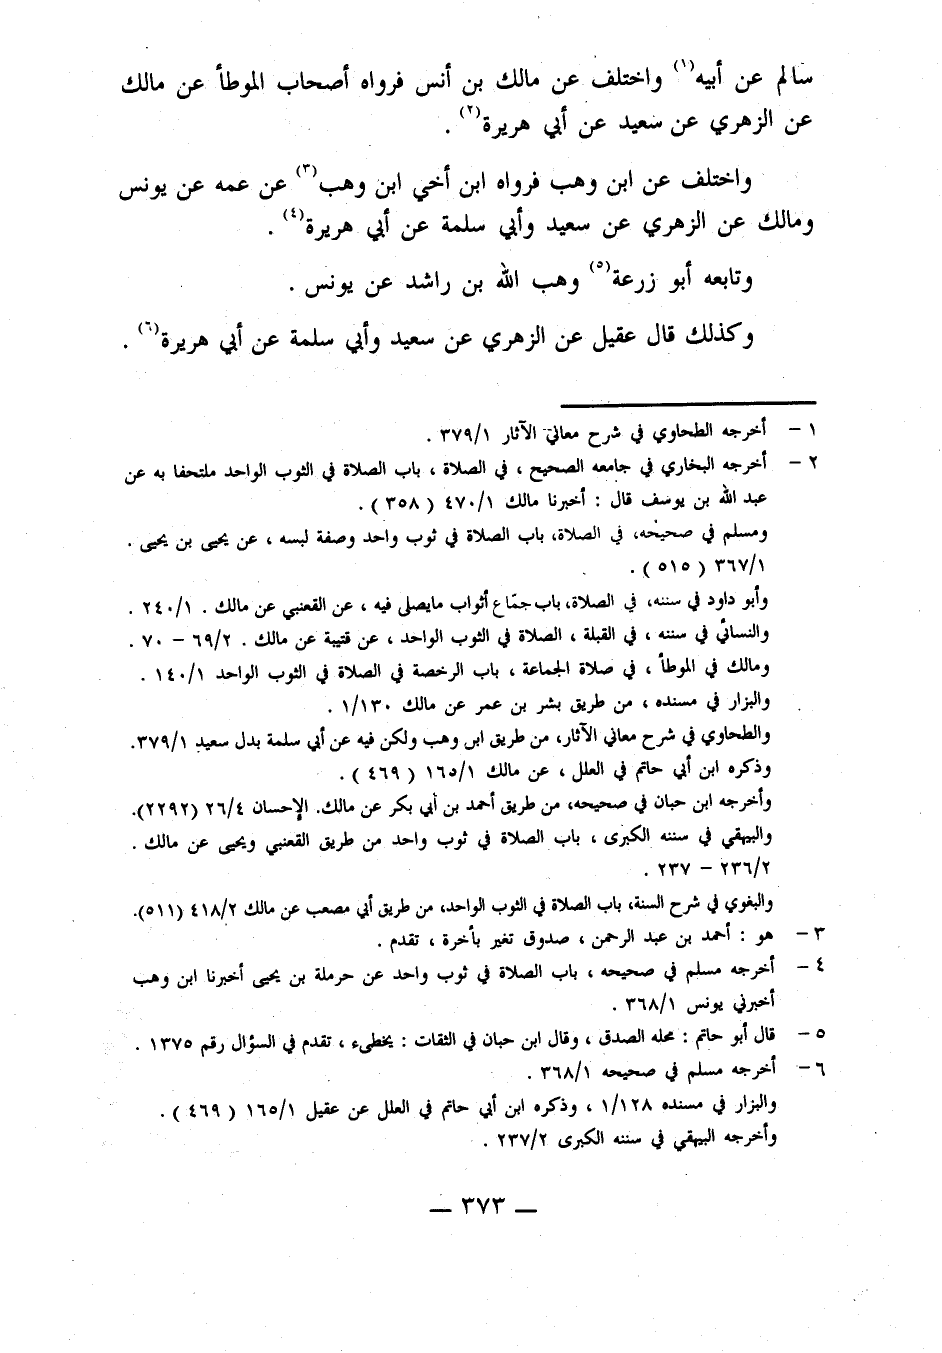 سالم عن أبيه(١) واختلف عن مالك بن أنس فرواه أصحاب الموطأ عن مالك
عن الزهري عن سعيد عن أبي هريرة(٢) .
واختلف عن ابن وهب فرواه ابن أخي ابن وهب(٣) عن عمه عن يونس
ومالك عن الزهري عن سعيد وأبي سلمة عن أبي هريرة(٤) .
وتابعه أبو زرعة(٥) وهب الله بن راشد عن يونس .
وكذلك قال عقيل عن الزهري عن سعيد وأبي سلمة عن أبي هريرة(٦) .
١ – أخرجه الطحاوي في شرح معاني الآثار ٣٧٩/١ .
٢ – أخرجه البخاري في جامعه الصحيح ، في الصلاة ، باب الصلاة في الثوب الواحد ملتحفا به عن
عبد الله بن يوسف قال : أخبرنا مالك ٤٧٠/١ ( ٣٥٨ ) .
ومسلم في صحيحه، في الصلاة، باب الصلاة في ثوب واحد وصفة لبسه ، عن يحيى بن يحيى .
٣٦٧/١ ( ٥١٥ ) .
وأبو داود في سننه، في الصلاة، باب جمّاع أثواب مايصلى فيه ، عن القعنبي عن مالك . ٢٤٠/١ .
والنسائي في سننه ، في القبلة ، الصلاة في الثوب الواحد ، عن قتيبة عن مالك . ٦٩/٢ – ٧٠ .
ومالك في الموطأ ، في صلاة الجماعة ، باب الرخصة في الصلاة في الثوب الواحد ١٤٠/١ .
والبزار في مسنده ، من طريق بشر بن عمر عن مالك ١/١٣٠ .
والطحاوي في شرح معاني الآثار، من طريق ابن وهب ولكن فيه عن أبي سلمة بدل سعيد ٣٧٩/١.
وذكره ابن أبي حاتم في العلل ، عن مالك ١٦٥/١ ( ٤٦٩ ) .
وأخرجه ابن حبان في صحيحه، من طريق أحمد بن أبي بكر عن مالك. الإحسان ٢٦/٤ (٢٢٩٢).
والبيهقي في سننه الكبرى ، باب الصلاة في ثوب واحد من طريق القعنبي ويحيى عن مالك .
٢٣٦/٢ – ٢٣٧ .
والبغوي في شرح السنة، باب الصلاة في الثوب الواحد، من طريق أبي مصعب عن مالك ٤١٨/٢ (٥١١).
٣ – هو : أحمد بن عبد الرحمن ، صدوق تغير بأخرة ، تقدم .
٤ – أخرجه مسلم في صحيحه ، باب الصلاة في ثوب واحد عن حرملة بن يحيى أخبرنا ابن وهب
أخبرني يونس ٣٦٨/١ .
٥ – قال أبو حاتم : محله الصدق ، وقال ابن حبان في الثقات : يخطىء ، تقدم في السؤال رقم ١٣٧٥ .
٦ – أخرجه مسلم في صحيحه ٣٦٨/١ .
والبزار في مسنده ١/١٢٨ ، وذكره ابن أبي حاتم في العلل عن عقيل ١٦٥/١ ( ٤٦٩ ) .
وأخرجه البيهقي في سننه الكبرى ٢٣٧/٢ .
— ٣٧٣ —